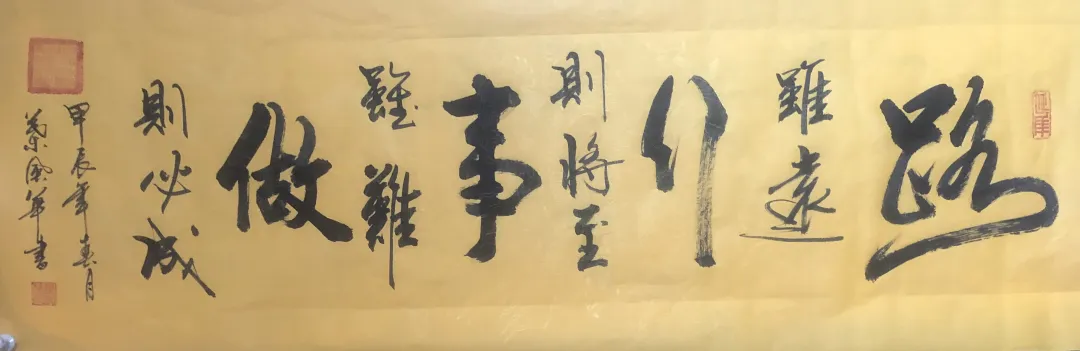 路
雖遠
行
則將至
事
雖難
做
則必成
甲辰年春月
風華書